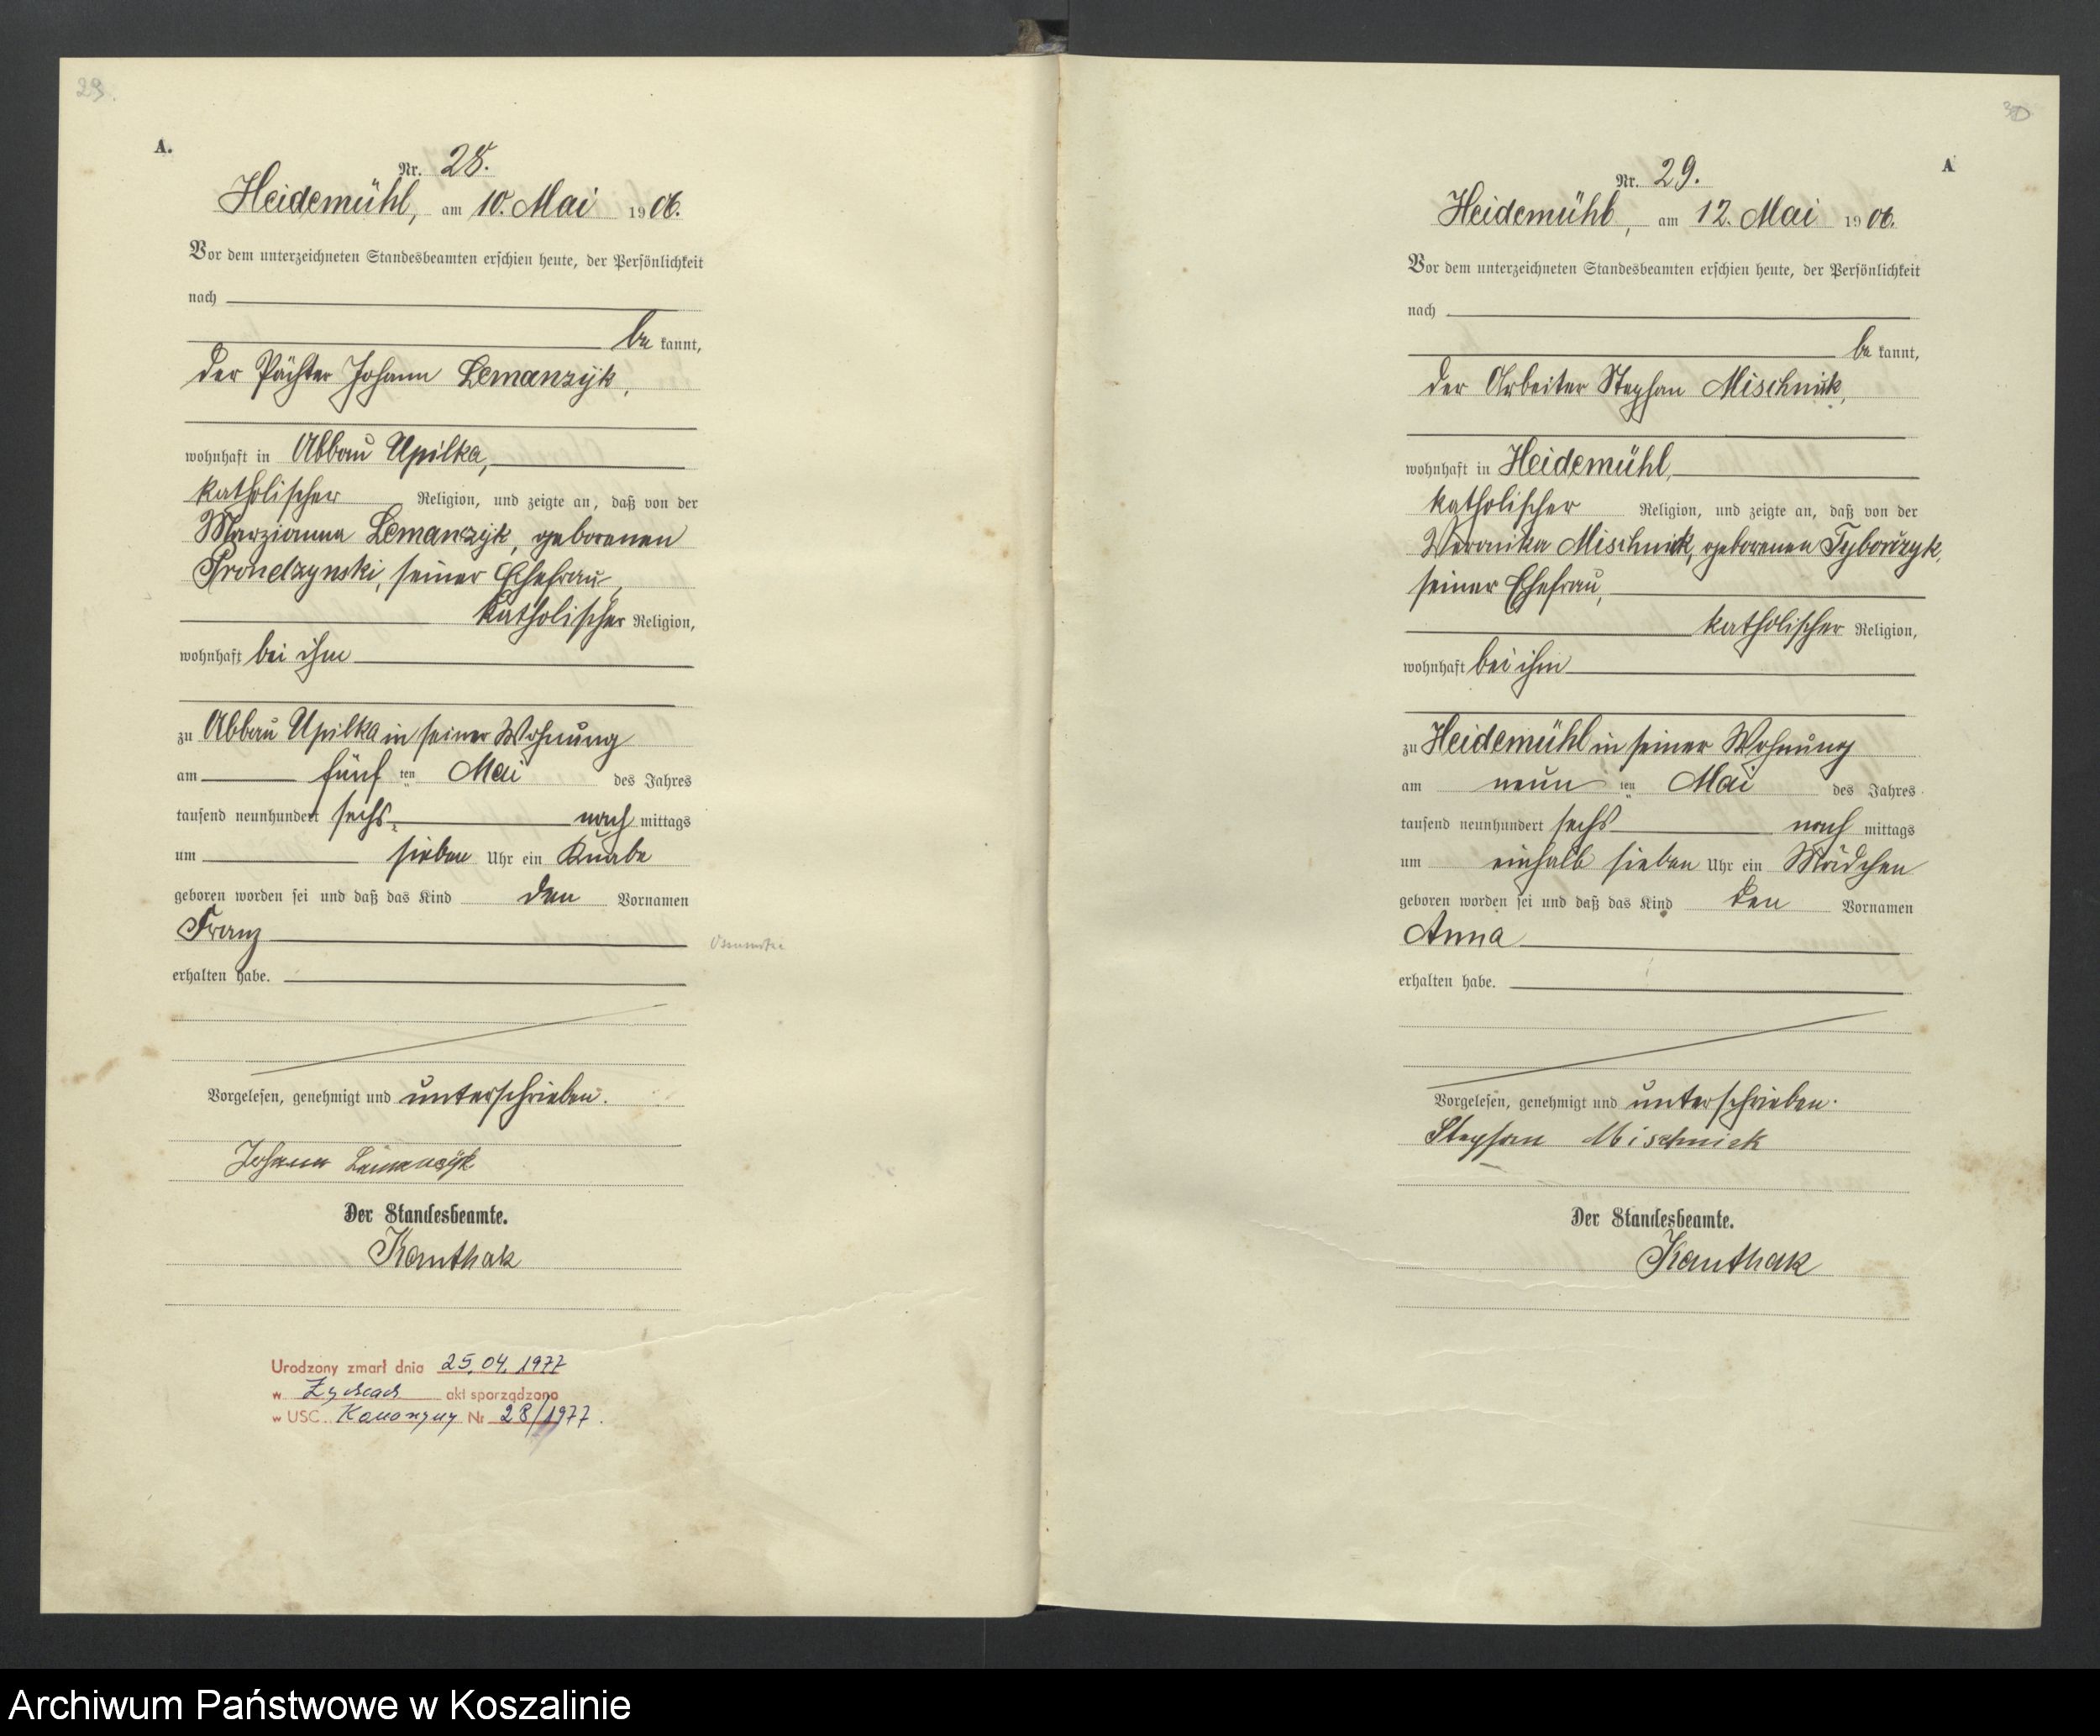 29.
A.
Nr. 28.
Heidemühl, am 10. Mai 1906.
Vor dem unterzeichneten Standesbeamten erschien heute, der Persönlichkeit
nach
be kannt,
der Pächter Johann Lemanzÿk,
wohnhaft in Abbau Upilka,
katholischer Religion, und zeigte an, daß von der
Marzianna Lemanzÿk, geborenen
Prondzynski, seiner Ehefrau,
katholischer Religion,
wohnhaft bei ihm
zu Abbau Upilka in seiner Wohnung
am fünf ten Mai des Jahres
tausend neunhundert sechs nach mittags
um sieben Uhr ein Knabe
geboren worden sei und daß das Kind den Vornamen
Franz
erhalten habe.
Vorgelesen, genehmigt und unterschrieben.
Johann Lemanczÿk
Der Standesbeamte.
Kauthak
Urodzony zmarł dnia 25.04.1977
w Zychcach akt sporządzono
w USC Konarzyny Nr 28/1977.
30
A
Nr. 29.
Heidemühl, am 12. Mai 1906.
Vor dem unterzeichneten Standesbeamten erschien heute, der Persönlichkeit
nach
be kannt,
der Arbeiter Stephan Mischnick,
wohnhaft in Heidemühl,
katholischer Religion, und zeigte an, daß von der
Veronika Mischnick, geborenen Tyborczyk,
seiner Ehefrau,
katholischer Religion,
wohnhaft bei ihm
zu Heidemühl in seiner Wohnung
am neun ten Mai des Jahres
tausend neunhundert sechs nach mittags
um einhalb sieben Uhr ein Mädchen
geboren worden sei und daß das Kind den Vornamen
Anna
erhalten habe.
Vorgelesen, genehmigt und unterschrieben.
Stephan Mischnick
Der Standesbeamte.
Kauthak
Archiwum Państwowe w Koszalinie